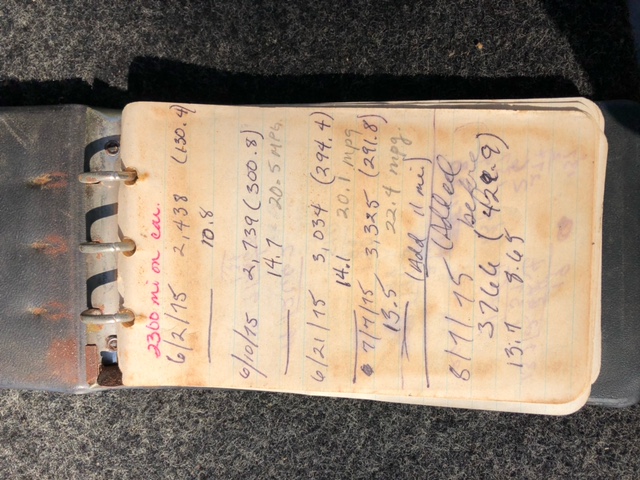 2300 mi on car.
6/2/75 2,438 (130.4)
10.8
6/10/75 2,739 (300.8)
14.7 20.5 MPG.
6/21/75 3,034 (294.4)
14.1 20.1 mpg
7/7/75 3,325 (291.8)
13.5 22.4 mpg
(add 11 mi)
8/7/75 (added before
3766 (429.9)
13.7 8.65